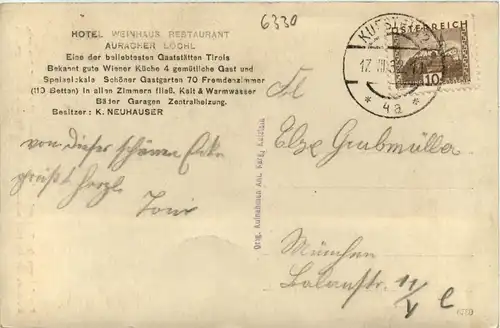 6330
HOTEL WEINHAUS RESTAURANT
AURACHER LÖCHL
Eine der beliebtesten Gaststätten Tirols
Bekannt gute Wiener Küche 4 gemütliche Gast und
Speiselokale Schöner Gastgarten 70 Fremdenzimmer
(113 Betten) in allen Zimmern fließ. Kalt & Warmwasser
Bäder Garagen Zentralheizung.
Besitzer: K. NEUHAUSER
KUFSTEIN
17. III
* 4a *
ÖSTERREICH
10
von dieser schönen Ecke
grüßt herzl.
Toni
Orig. Aufnahmen Ant. Karg, Kufstein
Elze Grubmüller
München
Balanstr. 11/V l